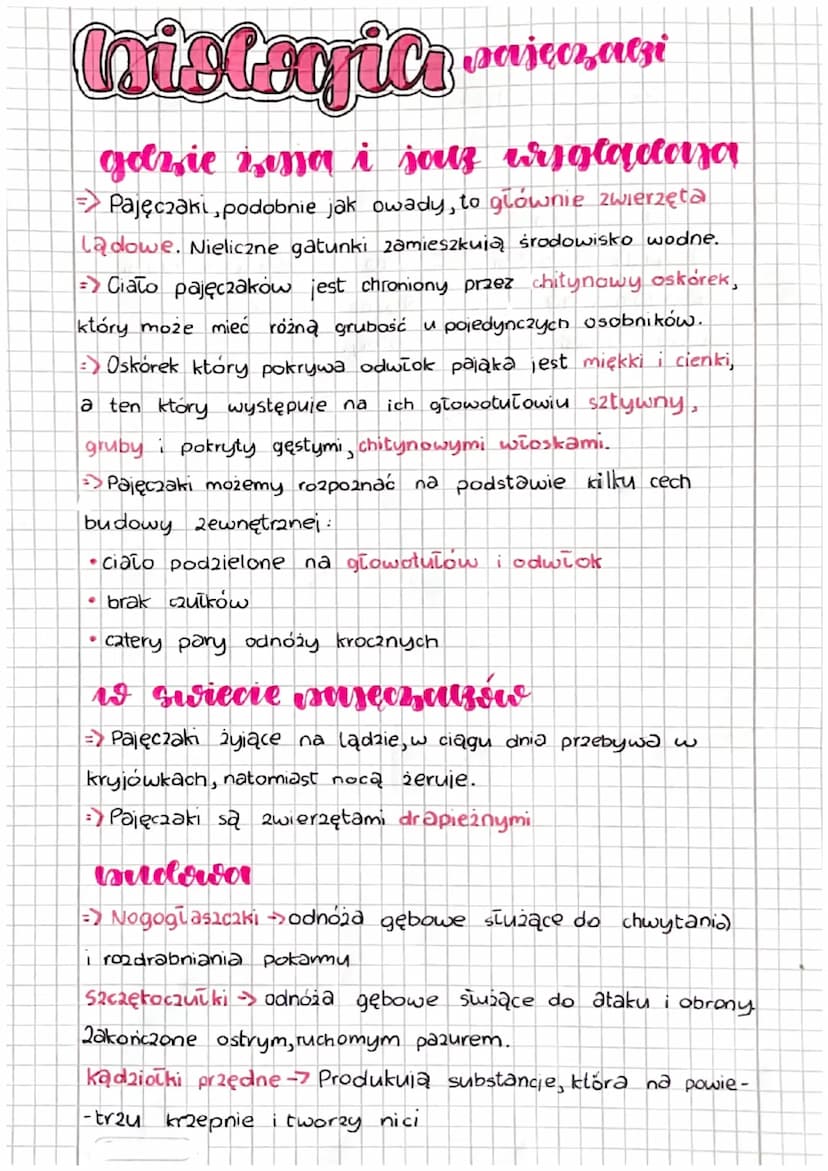 biologia pajęczaki
gdzie żyją i jak wyglądają
=> Pajęczaki, podobnie jak owady, to głównie zwierzęta
lądowe. Nieliczne gatunki zamieszkują środowisko wodne.
=> Ciało pajęczaków jest chroniony przez chitynowy oskórek,
który może mieć różną grubość u pojedynczych osobników.
=> Oskórek który pokrywa odwłok pająka jest miękki i cienki,
a ten który występuje na ich głowotułowiu sztywny,
gruby i pokryty gęstymi, chitynowymi włoskami.
=> Pajęczaki możemy rozpoznać na podstawie kilku cech
budowy zewnętrznej:
• ciało podzielone na głowotułów i odwłok
• brak czułków
• cztery pary odnóży krocznych
w świecie pajęczaków
=> Pajęczaki żyjące na lądzie, w ciągu dnia przebywa w
kryjówkach, natomiast nocą żeruje.
=> Pajęczaki są zwierzętami drapieżnymi
budowa
=> Nogogłaszczki -> odnóża gębowe służące do chwytania
i rozdrabniania pokarmu
Szczękoczułki -> odnóża gębowe służące do ataku i obrony.
Zakończone ostrym, ruchomym pazurem.
Kądziołki przędne -> Produkują substancje, która na powie-
-trzu krzepnie i tworzy nici